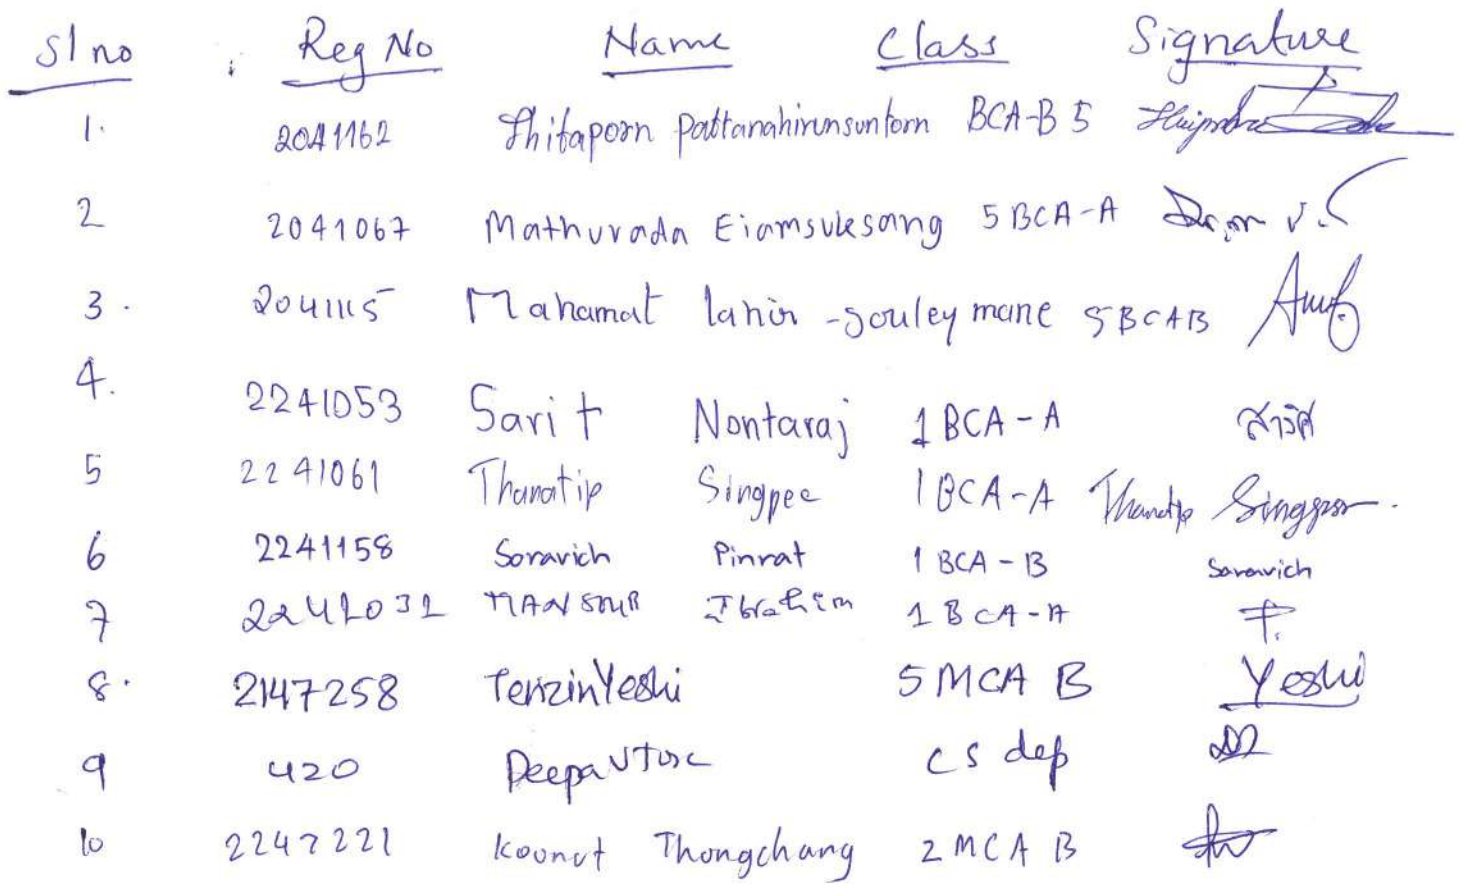 Sl no Reg No Name Class Signature
1. 2041162 Thitaporn Pattanahirunsuntorn BCA-B 5
2 2041067 Mathurada Eiamsuksang 5 BCA-A
3. 2041115 Mahamat lahir-souleymane 5BCAB
4. 2241053 Sarit Nontaraj 1 BCA-A สาริศ
5 2241061 Thanatip Singpee 1 BCA-A Thanatip
6 2241158 Soravich Pinrat 1 BCA-B Soravich
7 2241031 MANSOUR Ibrahim 1 BCA-A
8. 2147258 Tenzin Yeshi 5 MCA B Yeshi
9 420 Deepa V Jose CS dep
10 2247221 Kounut Thongchang 2 MCA B